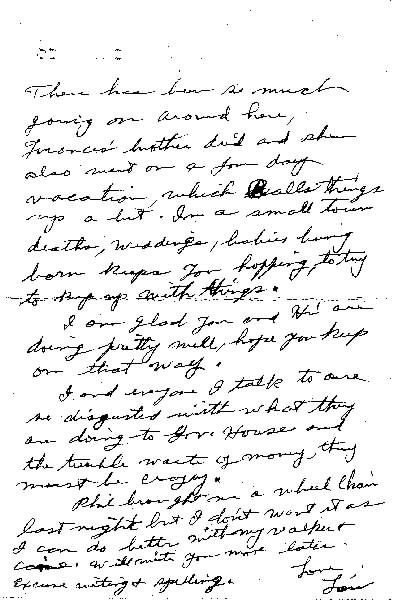 There has been so much
going on around here,
Frances' brother died and she
also went on a few day
vacation, which Balls things
up a bit. In a small town
deaths, weddings, babies being
born keeps you hopping, to try
to keep up with things.
I am glad you and are
doing pretty well, hope you keep
on that way.
I and everyone I talk to are
so disgusted with what they
are doing to Gov. House and
the terrible waste of money, they
must be crazy.
Phil brought me a wheel chair
last night but I don't want it as
I can do better with my walker &
cane. Will write you more later.
Excuse writing & spelling. Love